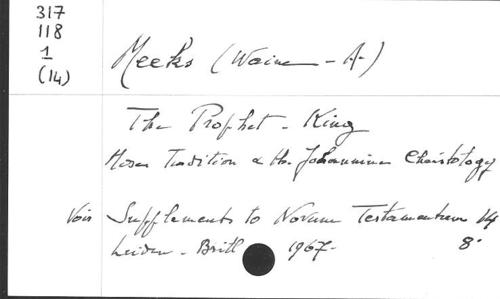 317
118
1
(14)
Meeks (Waine - A.)
The Prophet - King
Moses Tradition & the Johannine Christology
Voir Supplements to Novum Testamentum 14
Leiden - Brill 1967 - 8°